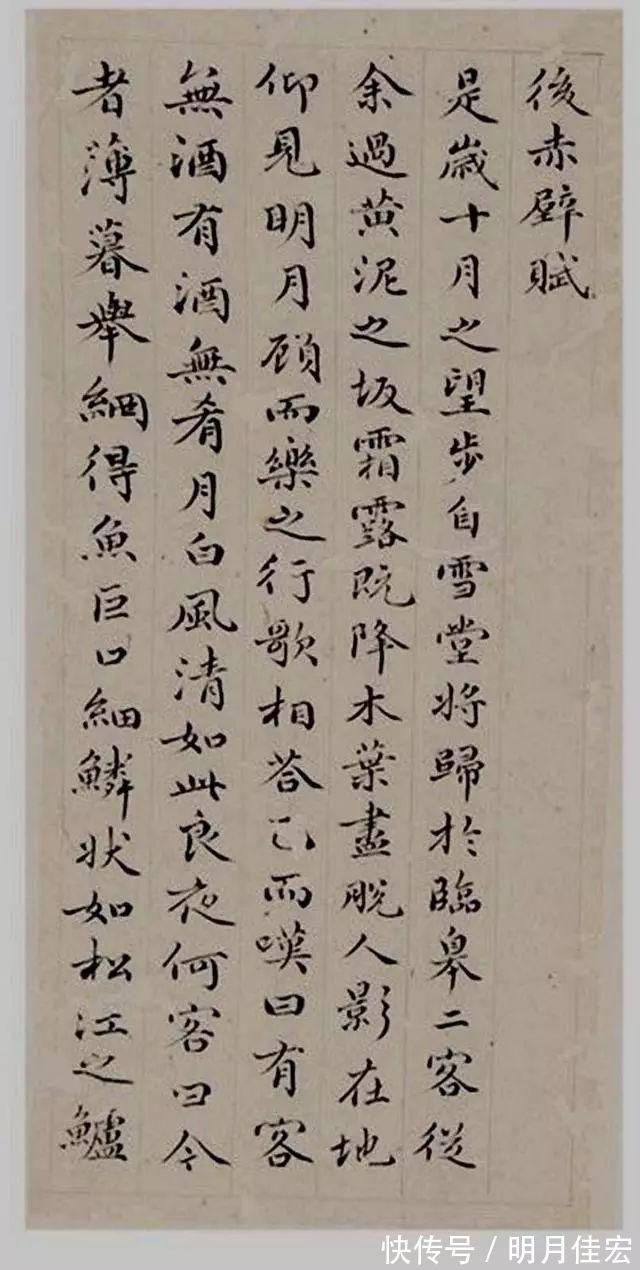 後赤壁賦
是歲十月之望步自雪堂將歸於臨皋二客從
余過黃泥之坂霜露既降木葉盡脫人影在地
仰見明月顧而樂之行歌相答已而嘆曰有客
無酒有酒無肴月白風清如此良夜何客曰今
者薄暮舉網得魚巨口細鱗狀如松江之鱸
快传号/明月佳宏